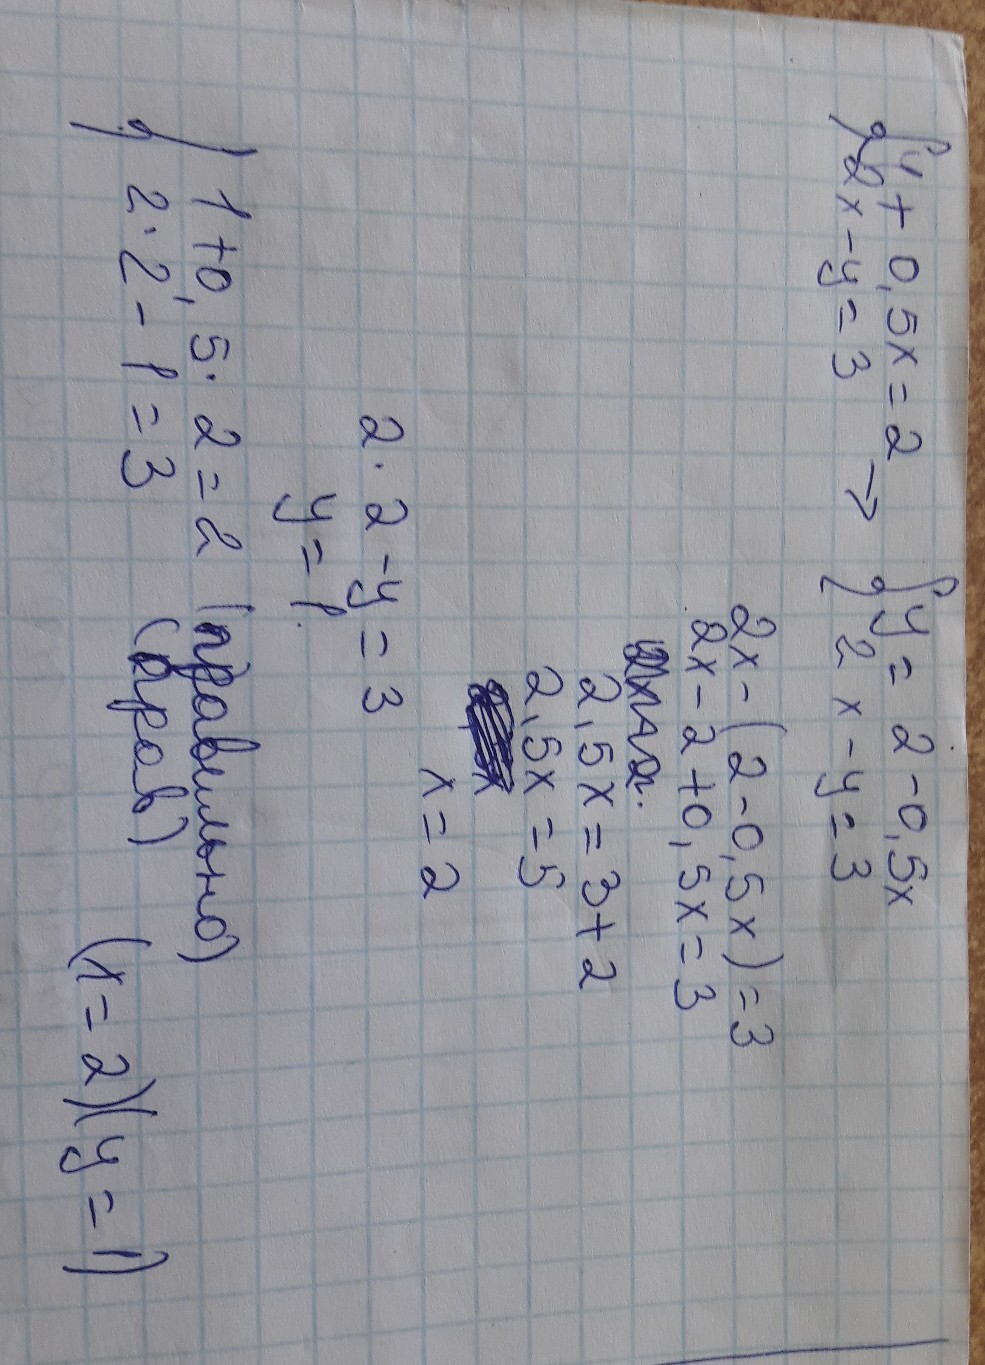 { y + 0,5x = 2 → { y = 2 - 0,5x
2x - y = 3 2x - y = 3
2x - (2 - 0,5x) = 3
2x - 2 + 0,5x = 3
2,5x = 3 + 2
2,5x = 5
x = 2
2 · 2 - y = 3
y = 1
{ 1 + 0,5 · 2 = 2 (правильно)
2 · 2 - 1 = 3 (прав)
(x = 2)(y = 1)